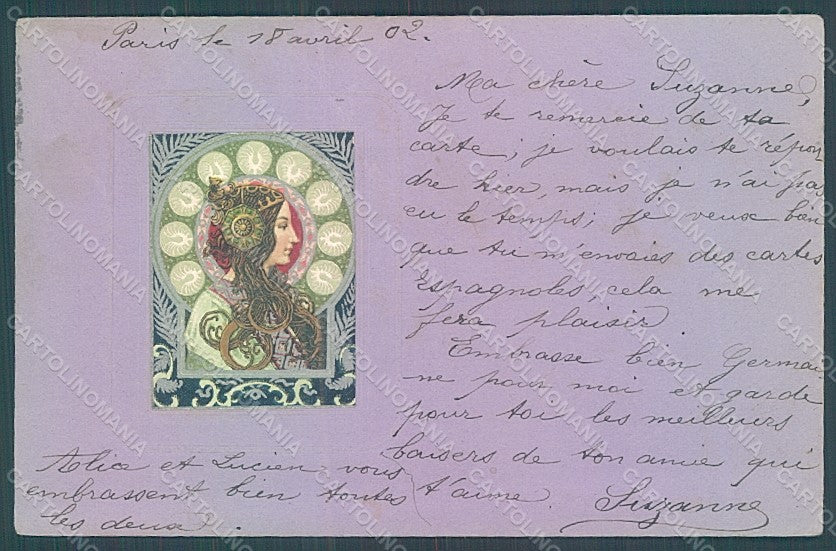 Paris le 18 avril 02.
Ma chère Suzanne,
Je te remercie de ta
carte; je voulais te répon
dre hier, mais je n'ai pas
eu le temps; je veux bien
que tu m'envoies des cartes
Espagnoles, cela me
fera plaisir
Embrasse bien Germai
ne pour moi et garde
pour toi les meilleurs
baisers de ton amie qui
t'aime.
Suzanne
Alice et Lucien vous
embrassent bien toutes
les deux.
CARTOLINOMANIA